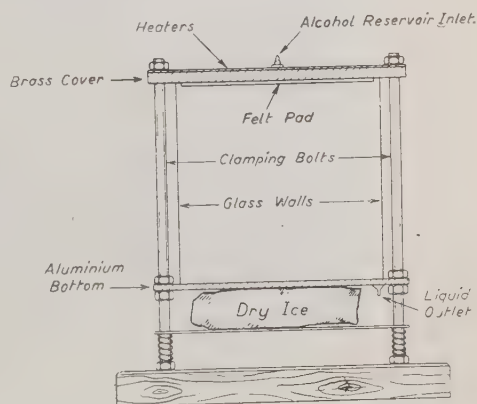 Alcohol Reservoir Inlet.
Heaters
Brass Cover
Felt Pad
Clamping Bolts
Glass Walls
Aluminium
Bottom
Dry Ice
Liquid
Outlet